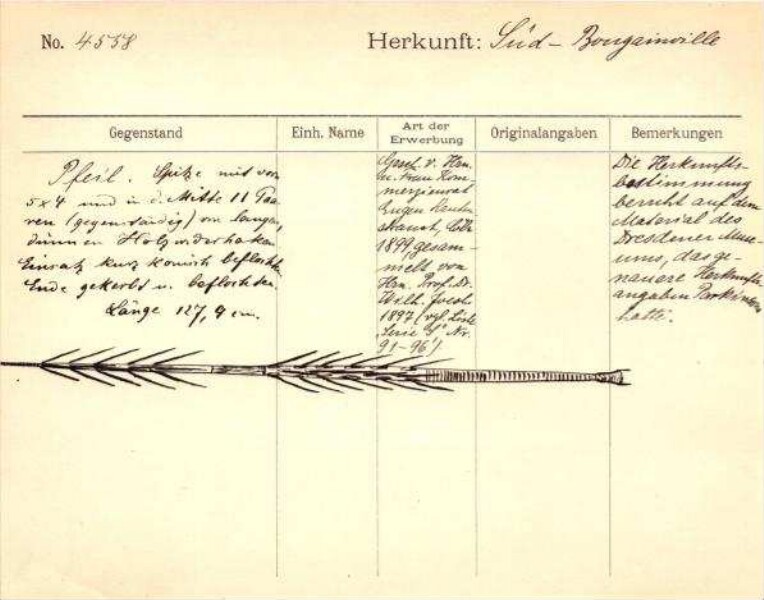 No. 4538
Herkunft: Süd-Bougainville
Gegenstand
Einh. Name
Art der
Erwerbung
Originalangaben
Bemerkungen
Pfeil. Spitze mit vorn
5x4 und in d. Mitte 11 Paa-
ren (gegenständig) von langen,
dünnen Holzwiderhaken.
Einsatz kurz konisch beflochten.
Ende gekerbt u. beflochten.
Länge 127,9 cm.
Gesch. v. Hrn.
u. Frau Kom-
merzienrat
Eugen Rauten-
strauch, Cöln
1899, gesam-
melt von
Hrn. Prof. Dr.
Wilh. Joest
1897 (vgl. Liste
"Serie S" Nr.
91-96)
Die Herkunfts-
bestimmung
beruht auf dem
Material des
Dresdener Muse-
ums, das ge-
nauere Herkunfts-
angaben Parkinsons
hatte.